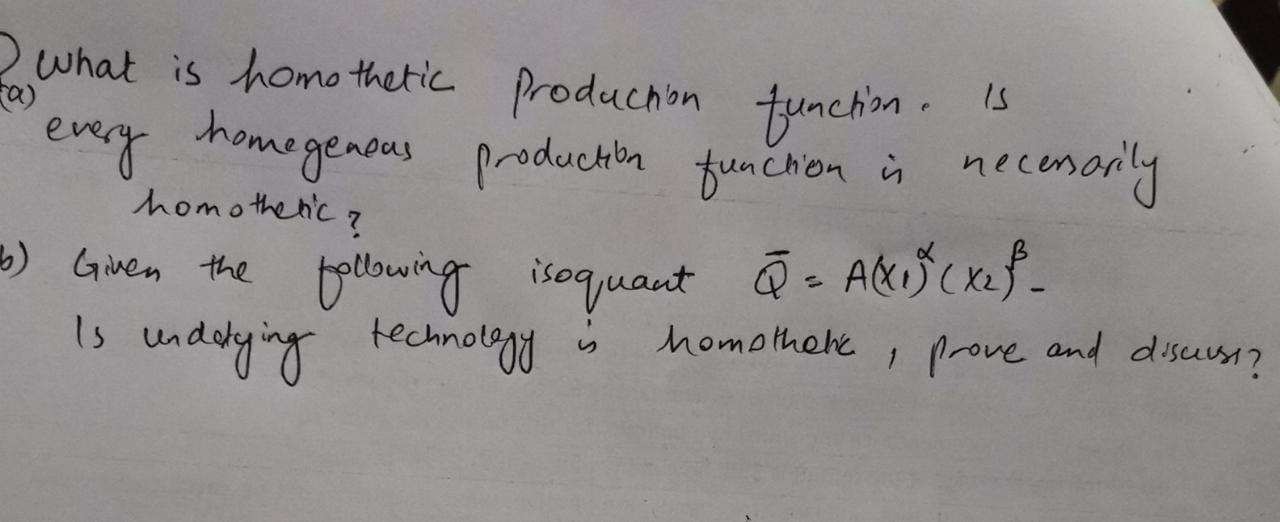 What is homothetic Production function. Is
(a)
every homegeneous production function is necessarily
homothetic?
b) Given the following isoquant Q̄ = A(X1)^α (X2)^β -
Is undelying technology is homothetic, prove and discuss?